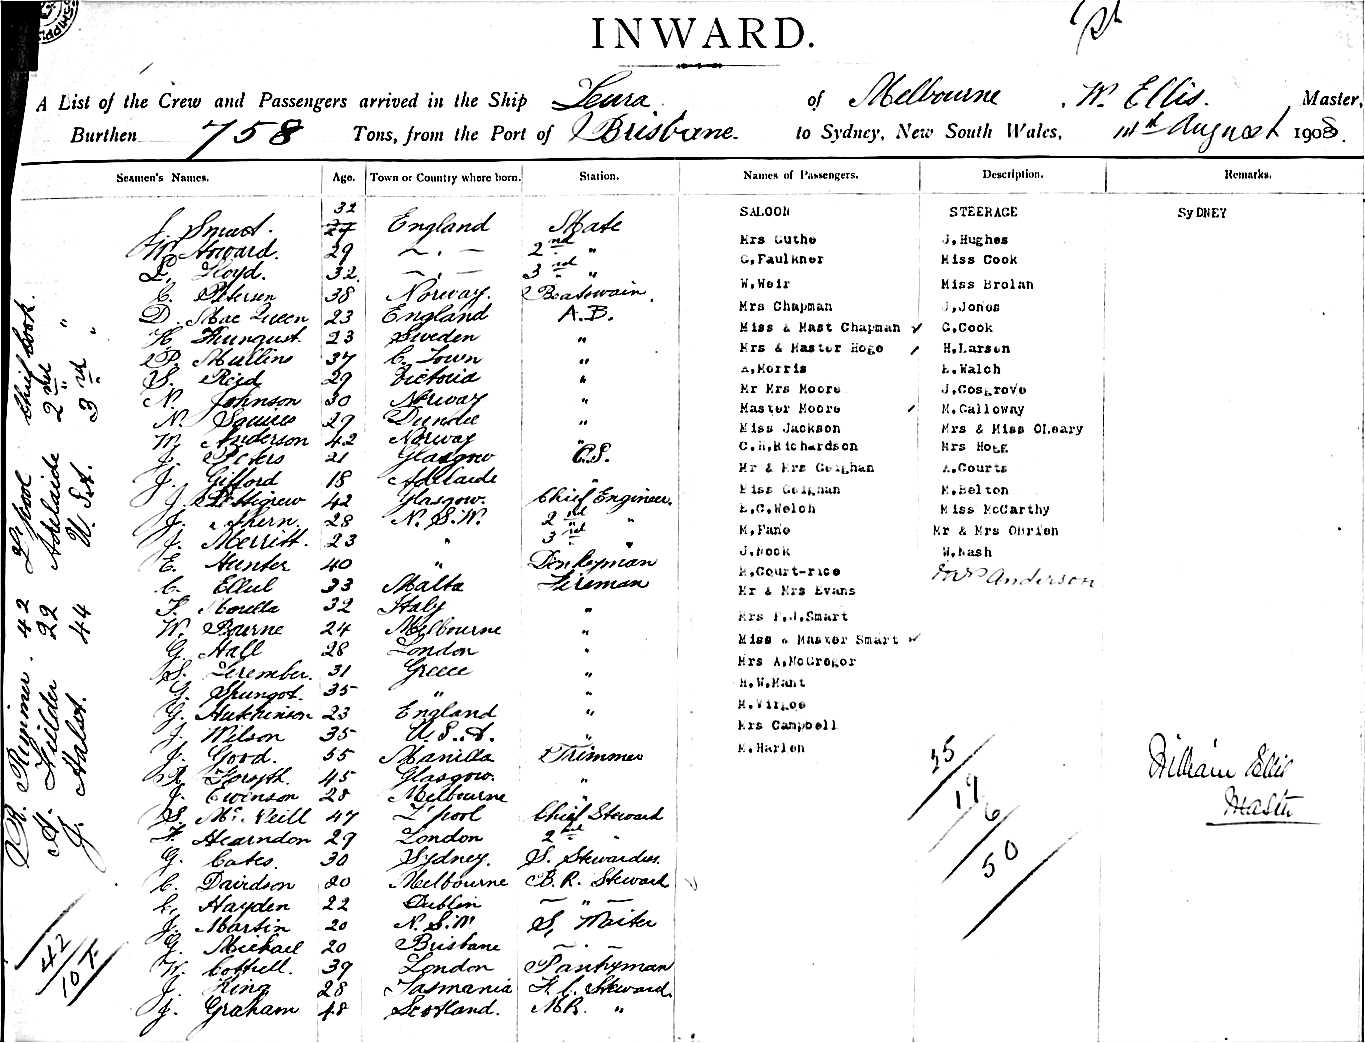 INWARD.
A List of the Crew and Passengers arrived in the Ship Leura of Melbourne, W. Ellis. Master,
Burthen 758 Tons, from the Port of Brisbane. to Sydney, New South Wales, 14th August 1908.
Seamen's Names. Age. Town or Country where born. Station. Names of Passengers. Description. Remarks.
SALOON STEERAGE SYDNEY
J. Smart. 32 England Mate
W. Howard. 29 — . — 2nd "
L. Lloyd. 32 — . — 3rd "
C. Petersen 38 Norway. Boatswain.
D. Mac Queen 23 England A.B.
H. 23 Sweden "
P. Mullins 37 C. Town "
S. Reid 29 Victoria "
N. Johnson 30 Norway "
N. Squires 29 Dundee "
W. Anderson 42 Norway "
J. Peters 21 Glasgow O.S.
J. Gifford 18 Adelaide "
J. 42 Glasgow. Chief Engineer.
J. Ahern. 28 N.S.W. 2nd "
J. Merritt. 23 " 3rd "
E. Hunter 40 " Donkeyman
C. Ellul 33 Malta Fireman
F. Morella 32 Italy "
W. Bourne 24 Melbourne "
G. Hall 28 London "
S. 31 Greece "
G. 35 " "
G. Hutchinson 23 England "
J. Wilson 35 U.S.A. "
J. Good. 55 Manilla Trimmer
R. Forsyth. 45 Glasgow. "
J. Ewinson 28 Melbourne "
S. Mc. Neill 47 L'pool Chief Steward
F. Hearndon 29 London 2nd "
G. Cates. 30 Sydney. S. Stewardess.
C. Davidson 20 Melbourne B.R. Steward
C. Hayden 22 Dublin — " —
J. Martin 20 N.S.W S. Waiter
G. Michael 20 Brisbane — . —
W. Cottrell. 39 London Pantryman
J. King 28 Tasmania F.C. Steward.
J. Graham 48 Scotland. M.R. "
Mrs Guthe
G.Faulkner
W.Weir
Mrs Chapman
Miss & Mast Chapman ✓
Mrs & Master Hoge ✓
A.Morris
Mr Mrs Moore
Master Moore ✓
Miss Jackson
C.H.Richardson
Mr & Mrs Geighan
Miss Geighan
E.C.Welch
M.Fane
J.Nock
E.Court-rice
Mr & Mrs Evans
Mrs F.J.Smart
Miss & Master Smart ✓
Mrs A.McGregor
H.W.Hant
M.Virgoe
Mrs Campbell
M.Harlen
J.Hughes
Miss Cook
Miss Brolan
J.Jones
G.Cook
H.Larsen
E.Walch
J.Cosgrove
M.Galloway
Mrs & Miss OLeary
Mrs Hogg
A.Courts
M.Belton
Miss McCarthy
Mr & Mrs Obrien
W.Nash
Mrs Anderson
35
19
6
50
William Ellis
Master
R. Rimmer. 42 L'pool Chief Cook.
H. Fielder 22 Adelaide 2nd "
J. Halst. 44 U. St. 3rd "
42
10 T.